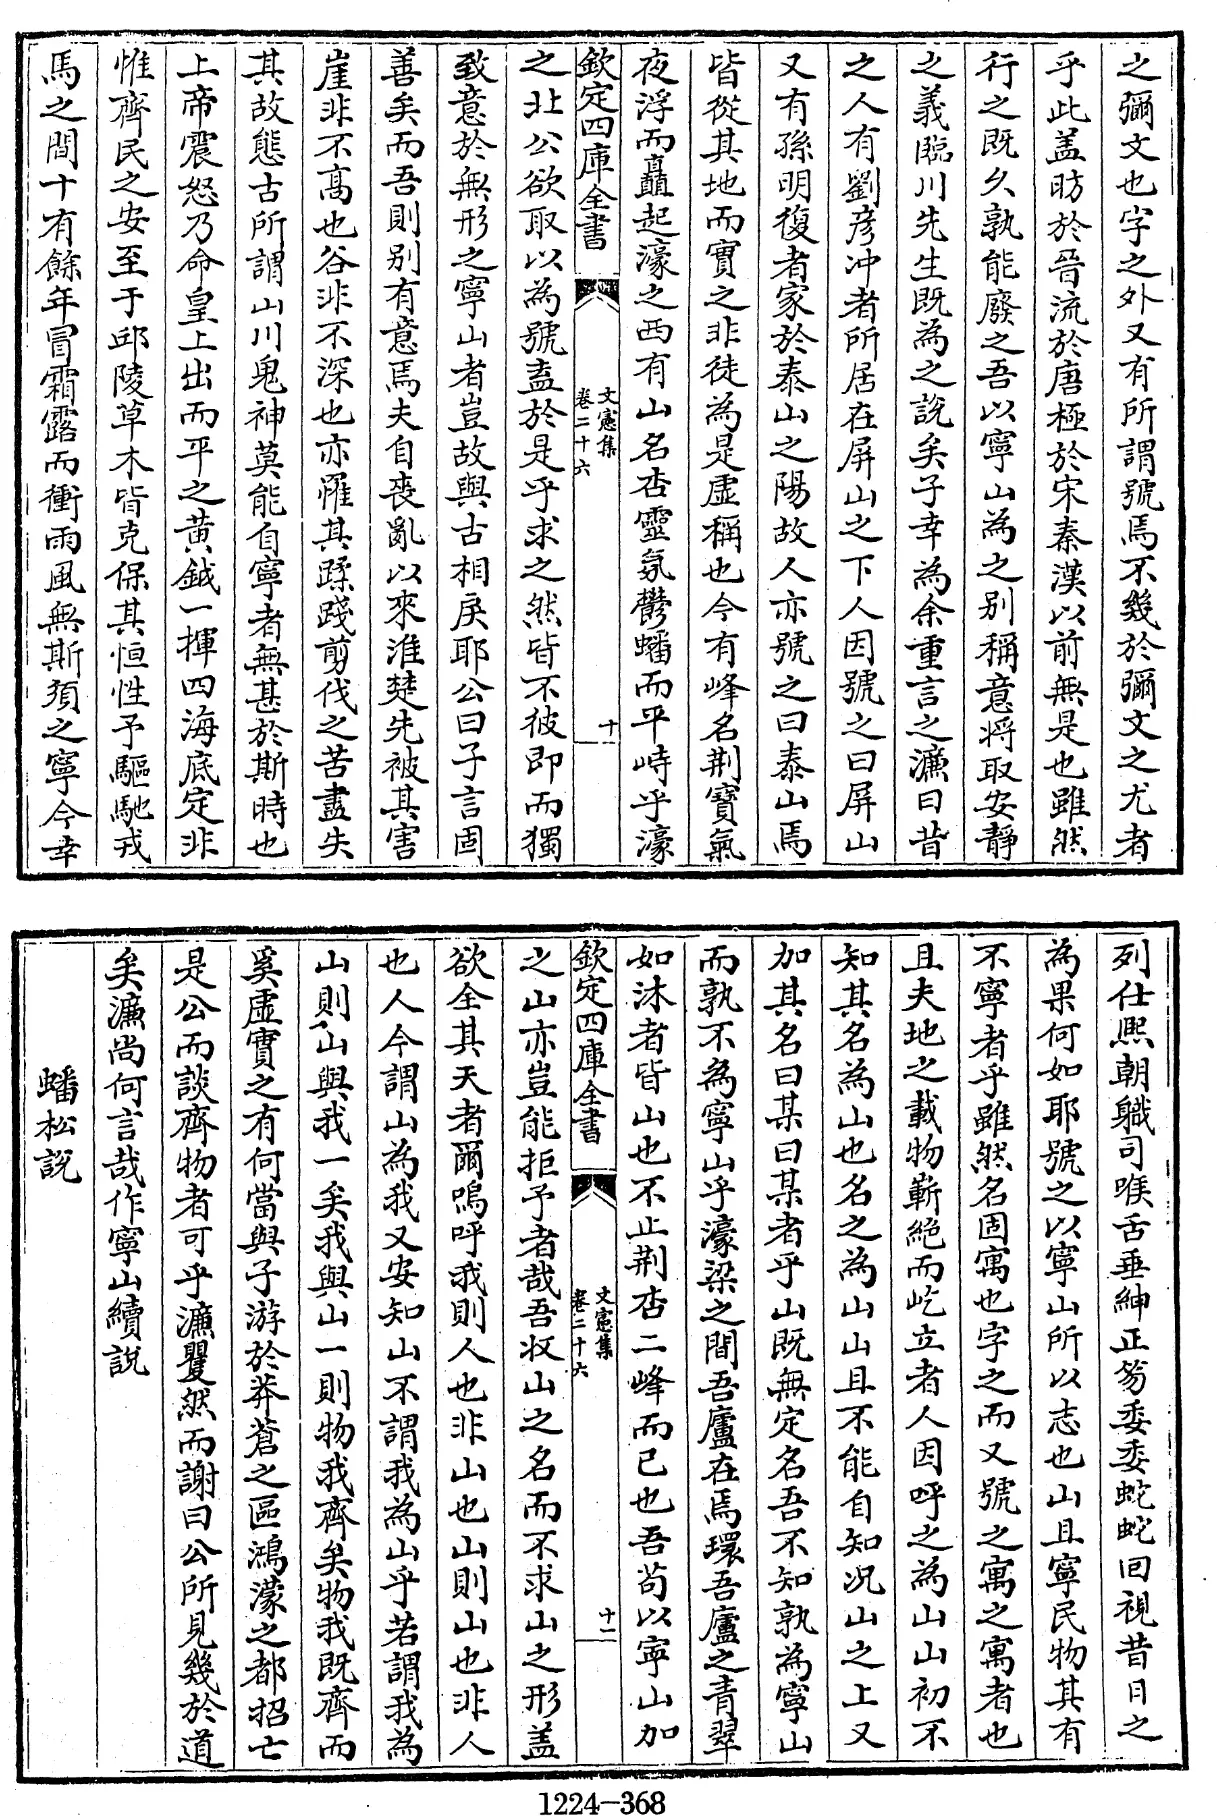 之彌文也字之外又有所謂號焉不幾於彌文之尤者
乎此盖昉於晉流於唐極於宋秦漢以前無是也雖然
行之既久孰能廢之吾以寧山為之别稱意將取安靜
之義臨川先生既為之說矣子幸為余重言之濂曰昔
之人有劉彦冲者所居在屏山之下人因號之曰屏山
又有孫明復者家於泰山之陽故人亦號之曰泰山焉
皆從其地而實之非徒為是虛稱也今有峰名荆寶氣
夜浮而矗起濠之西有山名杏靈氛鬱蟠而平峙乎濠
欽定四庫全書
文憲集
卷二十六
十
之北公欲取以為號盍於是乎求之然皆不彼即而獨
致意於無形之寧山者豈故與古相戾耶公曰子言固
善矣而吾則别有意焉夫自喪亂以來淮楚先被其害
崖非不髙也谷非不深也亦罹其蹂踐剪伐之苦盡失
其故態古所謂山川鬼神莫能自寧者無甚於斯時也
上帝震怒乃命皇上出而平之黄鉞一揮四海底定非
惟齊民之安至于邱陵草木皆克保其恒性予驅馳戎
馬之間十有餘年冒霜露而衝雨風無斯須之寧今幸
列仕熙朝職司喉舌垂紳正笏委委蛇蛇回視昔日之
為果何如耶號之以寧山所以志也山且寧民物其有
不寧者乎雖然名固寓也字之而又號之寓之寓者也
且夫地之載物嶄絶而屹立者人因呼之為山山初不
知其名為山也名之為山山且不能自知况山之上又
加其名曰某曰某者乎山既無定名吾不知孰為寧山
而孰不為寧山乎濠梁之間吾廬在焉環吾廬之青翠
如沐者皆山也不止荆杏二峰而已也吾苟以寧山加
欽定四庫全書
文憲集
卷二十六
十一
之山亦豈能拒予者哉吾㧞山之名而不求山之形盖
欲全其天者爾嗚呼我則人也非山也山則山也非人
也人今謂山為我又安知山不謂我為山乎若謂我為
山則山與我一矣我與山一則物我齊矣物我既齊而
奚虛實之有何當與子游於莽蒼之區鴻濛之都招亡
是公而談齊物者可乎濂瞿然而謝曰公所見幾於道
矣濂尚何言哉作寧山續說
蟠松說
1224—368